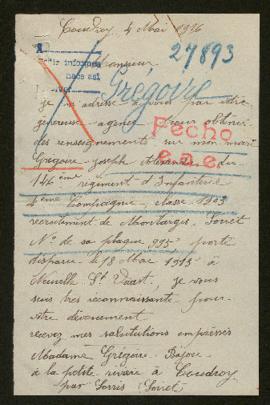 Coudroy 4 Mai 1916
27893
Monsieur
Grégoire
je m'adresse à vous par votre
généreuse agence pour obtenir
des renseignements sur mon mari
Fecho
Grégoire Joseph Alexandre du
e.a.e.
146ème régiment d'Infanterie
4ème Compagnie, classe 1903
recrutement de Montargis, Loiret
No de sa plaque 995, porté
disparu le 18 Mai 1915 à
Neuville St Vaast, je vous
suis très reconnaissante pour
votre dévouement
recevez mes salutations empressées
Madame Grégoire
à la poste à Coudroy
par Lorris (Loiret)